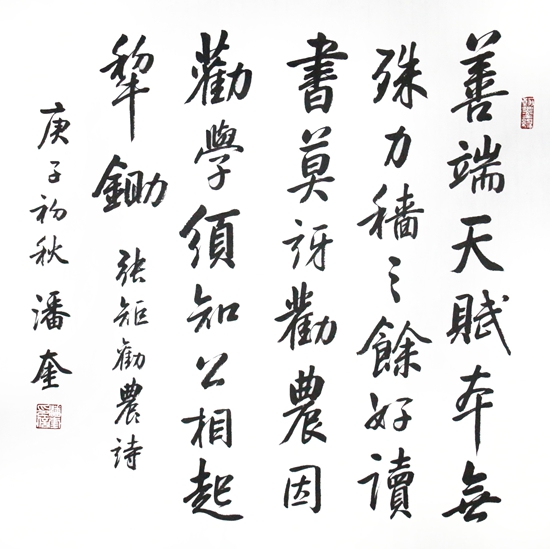 善端天賦本無
殊力穡之餘好讀
書莫訝勸農因
勸學須知公相起
犂鋤
張矩勸農詩
庚子初秋潘奎